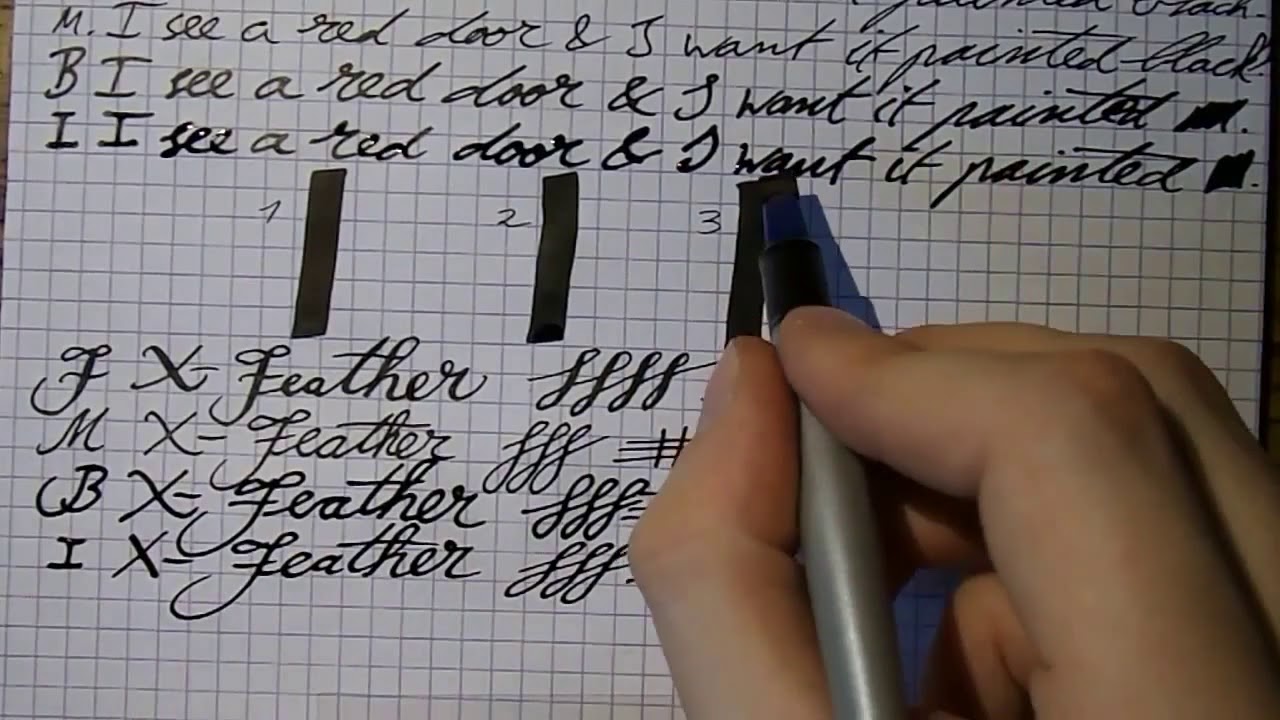 painted black.
M. I see a red door & I want it painted black.
B I see a red door & I want it painted
I I see a red door & I want it painted
1 2 3
F X-Feather ffff
M X-Feather fff #
B X-Feather fff
I X-Feather fff